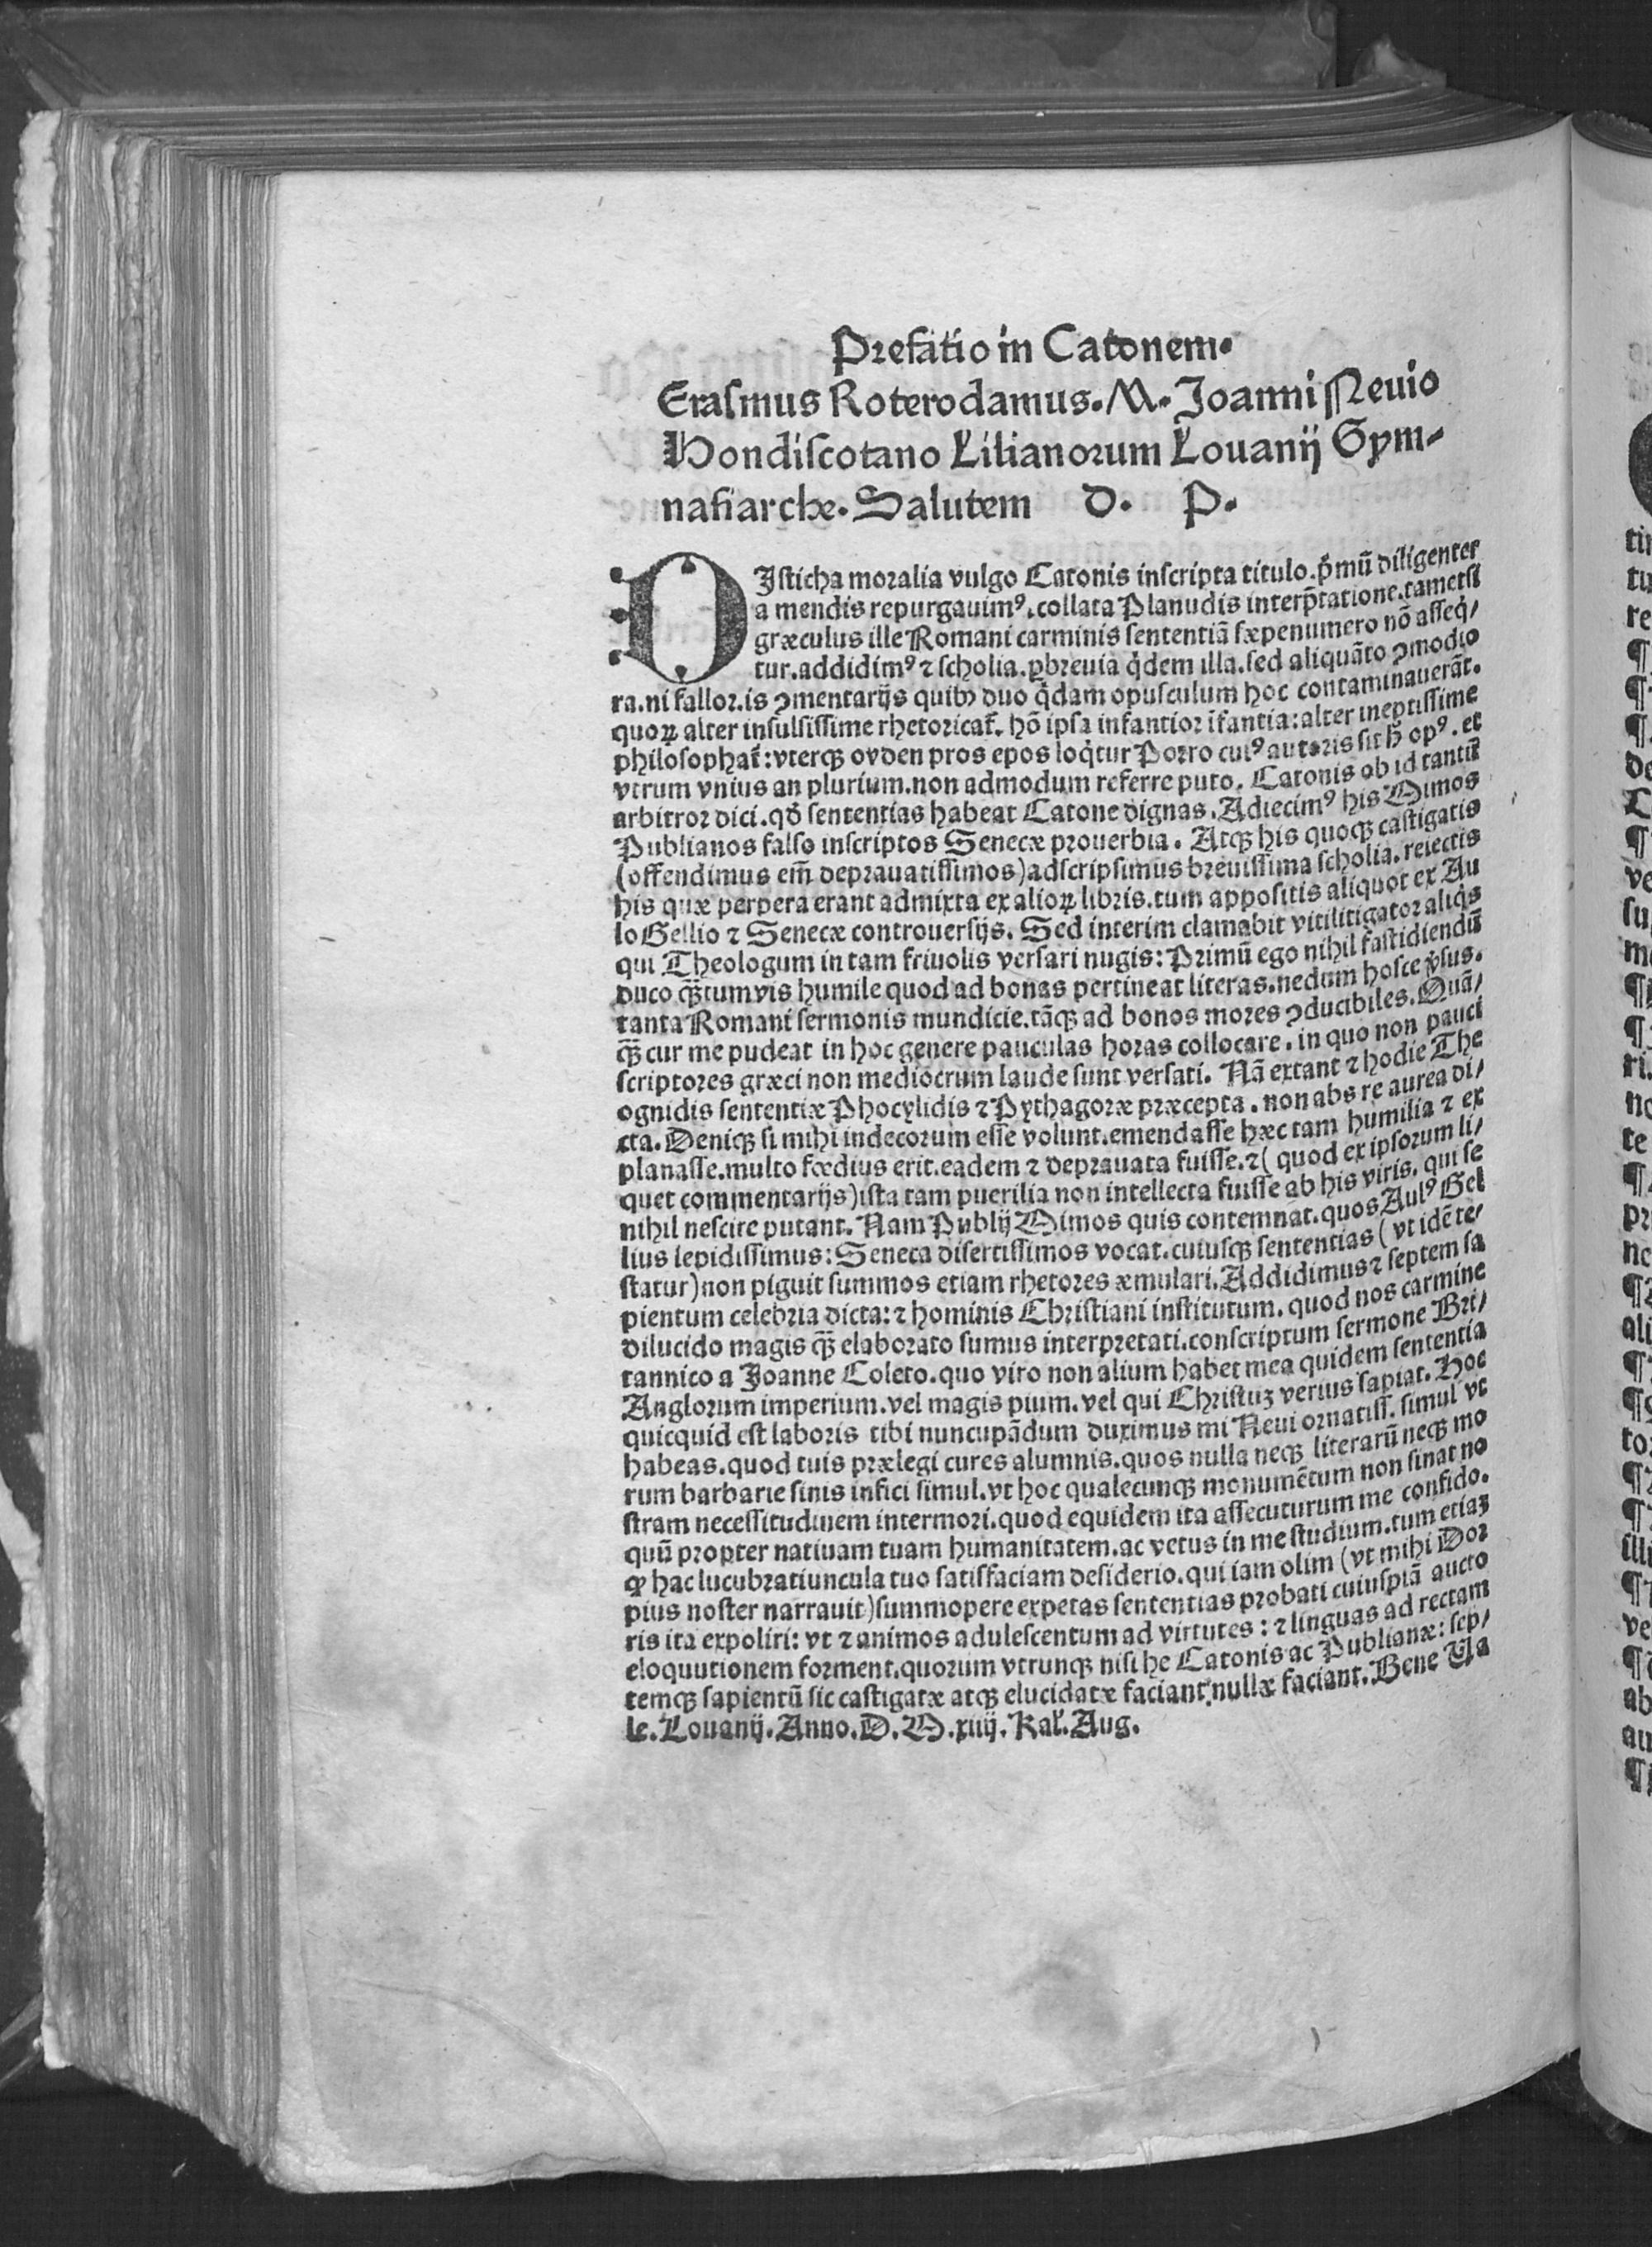 Prefatio in Catonem.
Erasmus Roterodamus. M. Joanni Neuio
Hondiscotano Lilianorum Louanij Gym-
nasiarche. Salutem D. P.
DIsticha moralia vulgo Catonis inscripta titulo. p̃mū diligenter
a mendis repurgauimꝰ. collata Planudis interp̃tatione. tametsi
græculus ille Romani carminis sententiã sæpenumero nõ asseq̇/
tur. addidimꝰ ⁊ scholia. ꝑbreuia q̇dem illa. sed aliquãto ↄmodio
ra. ni fallor. is ↄmentarijs quibꝰ duo q̇dam opusculum hoc contaminauerãt.
quoꝝ alter insulsissime rhetoricat̃. hõ ipsa infantior ĩfantia: alter ineptissime
philosophat̃: vterqꝫ ovden pros epos loq̇tur Porro cuiꝰ autoris sit h̃ opꝰ. et
vtrum vnius an plurium. non admodum referre puto. Catonis ob id tantũ
arbitror dici. qđ sententias habeat Catone dignas. Adiecimꝰ his Mimos
Publianos falso inscriptos Senecæ prouerbia. Atqꝫ his quoqꝫ castigatis
(offendimus em̃ deprauatissimos) adscripsimus breuissima scholia. reiectis
his quæ perpera erant admixta ex alioꝝ libris. tum appositis aliquot ex Au
lo Gellio ⁊ Senecæ controuersijs. Sed interim clamabit vitilitigator aliq̇s
qui Theologum in tam friuolis versari nugis: Primũ ego nihil fastidiendũ
duco qꝫ̃tumvis humile quod ad bonas pertineat literas. nedum hosce v̾sus.
tanta Romani sermonis mundicie. tãqꝫ ad bonos mores ↄducibiles. Quã/
qꝫ̃ cur me pudeat in hoc genere pauculas horas collocare. in quo non pauci
scriptores græci non mediocrum laude sunt versati. Nã extant ⁊ hodie The
ognidis sententiæ Phocylidis ⁊ Pythagoræ præcepta. non abs re aurea di/
cta. Deniqꝫ si mihi indecorum esse volunt. emendasse hæc tam humilia ⁊ ex
planasse. multo fœdius erit. eadem ⁊ deprauata fuisse. ⁊ (quod ex ipsorum li/
quet commentarijs) ista tam puerilia non intellecta fuisse ab his viris. qui se
nihil nescire putant. Nam Publij Mimos quis contemnat. quos Aulꝰ Gel
lius lepidissimus: Seneca disertissimos vocat. cuiusqꝫ sententias (vt idẽ te/
statur) non piguit summos etiam rhetores æmulari. Addidimus ⁊ septem sa
pientum celebria dicta: ⁊ hominis Christiani institutum. quod nos carmine
dilucido magis qꝫ̃ elaborato sumus interpretati. conscriptum sermone Bri/
tannico a Joanne Coleto. quo viro non alium habet mea quidem sententia
Anglorum imperium. vel magis pium. vel qui Christuꝫ verius sapiat. Hoc
quicquid est laboris tibi nuncupãdum duximus mi Neui ornatiss. simul vt
habeas. quod tuis prælegi cures alumnis. quos nulla neqꝫ literarũ neqꝫ mo
rum barbarie sinis infici simul. vt hoc qualecunqꝫ monumẽtum non sinat no
stram necessitudinem intermori. quod equidem ita assecuturum me confido.
quũ propter natiuam tuam humanitatem. ac vetus in me studium. tum etiaꝫ
ꝙ hac lucubratiuncula tuo satisfaciam desiderio. qui iam olim (vt mihi Dor
pius noster narrauit) summopere expetas sententias probati cuiuspiã aucto
ris ita expoliri: vt ⁊ animos adulescentum ad virtutes: ⁊ linguas ad rectam
eloquutionem forment. quorum vtrunqꝫ nisi he Catonis ac Publianæ: sep/
temqꝫ sapientũ sic castigatæ atqꝫ elucidatæ faciant: nullæ faciant. Bene Va
le. Louanij. Anno. D. M. xiiij. Kal. Aug.